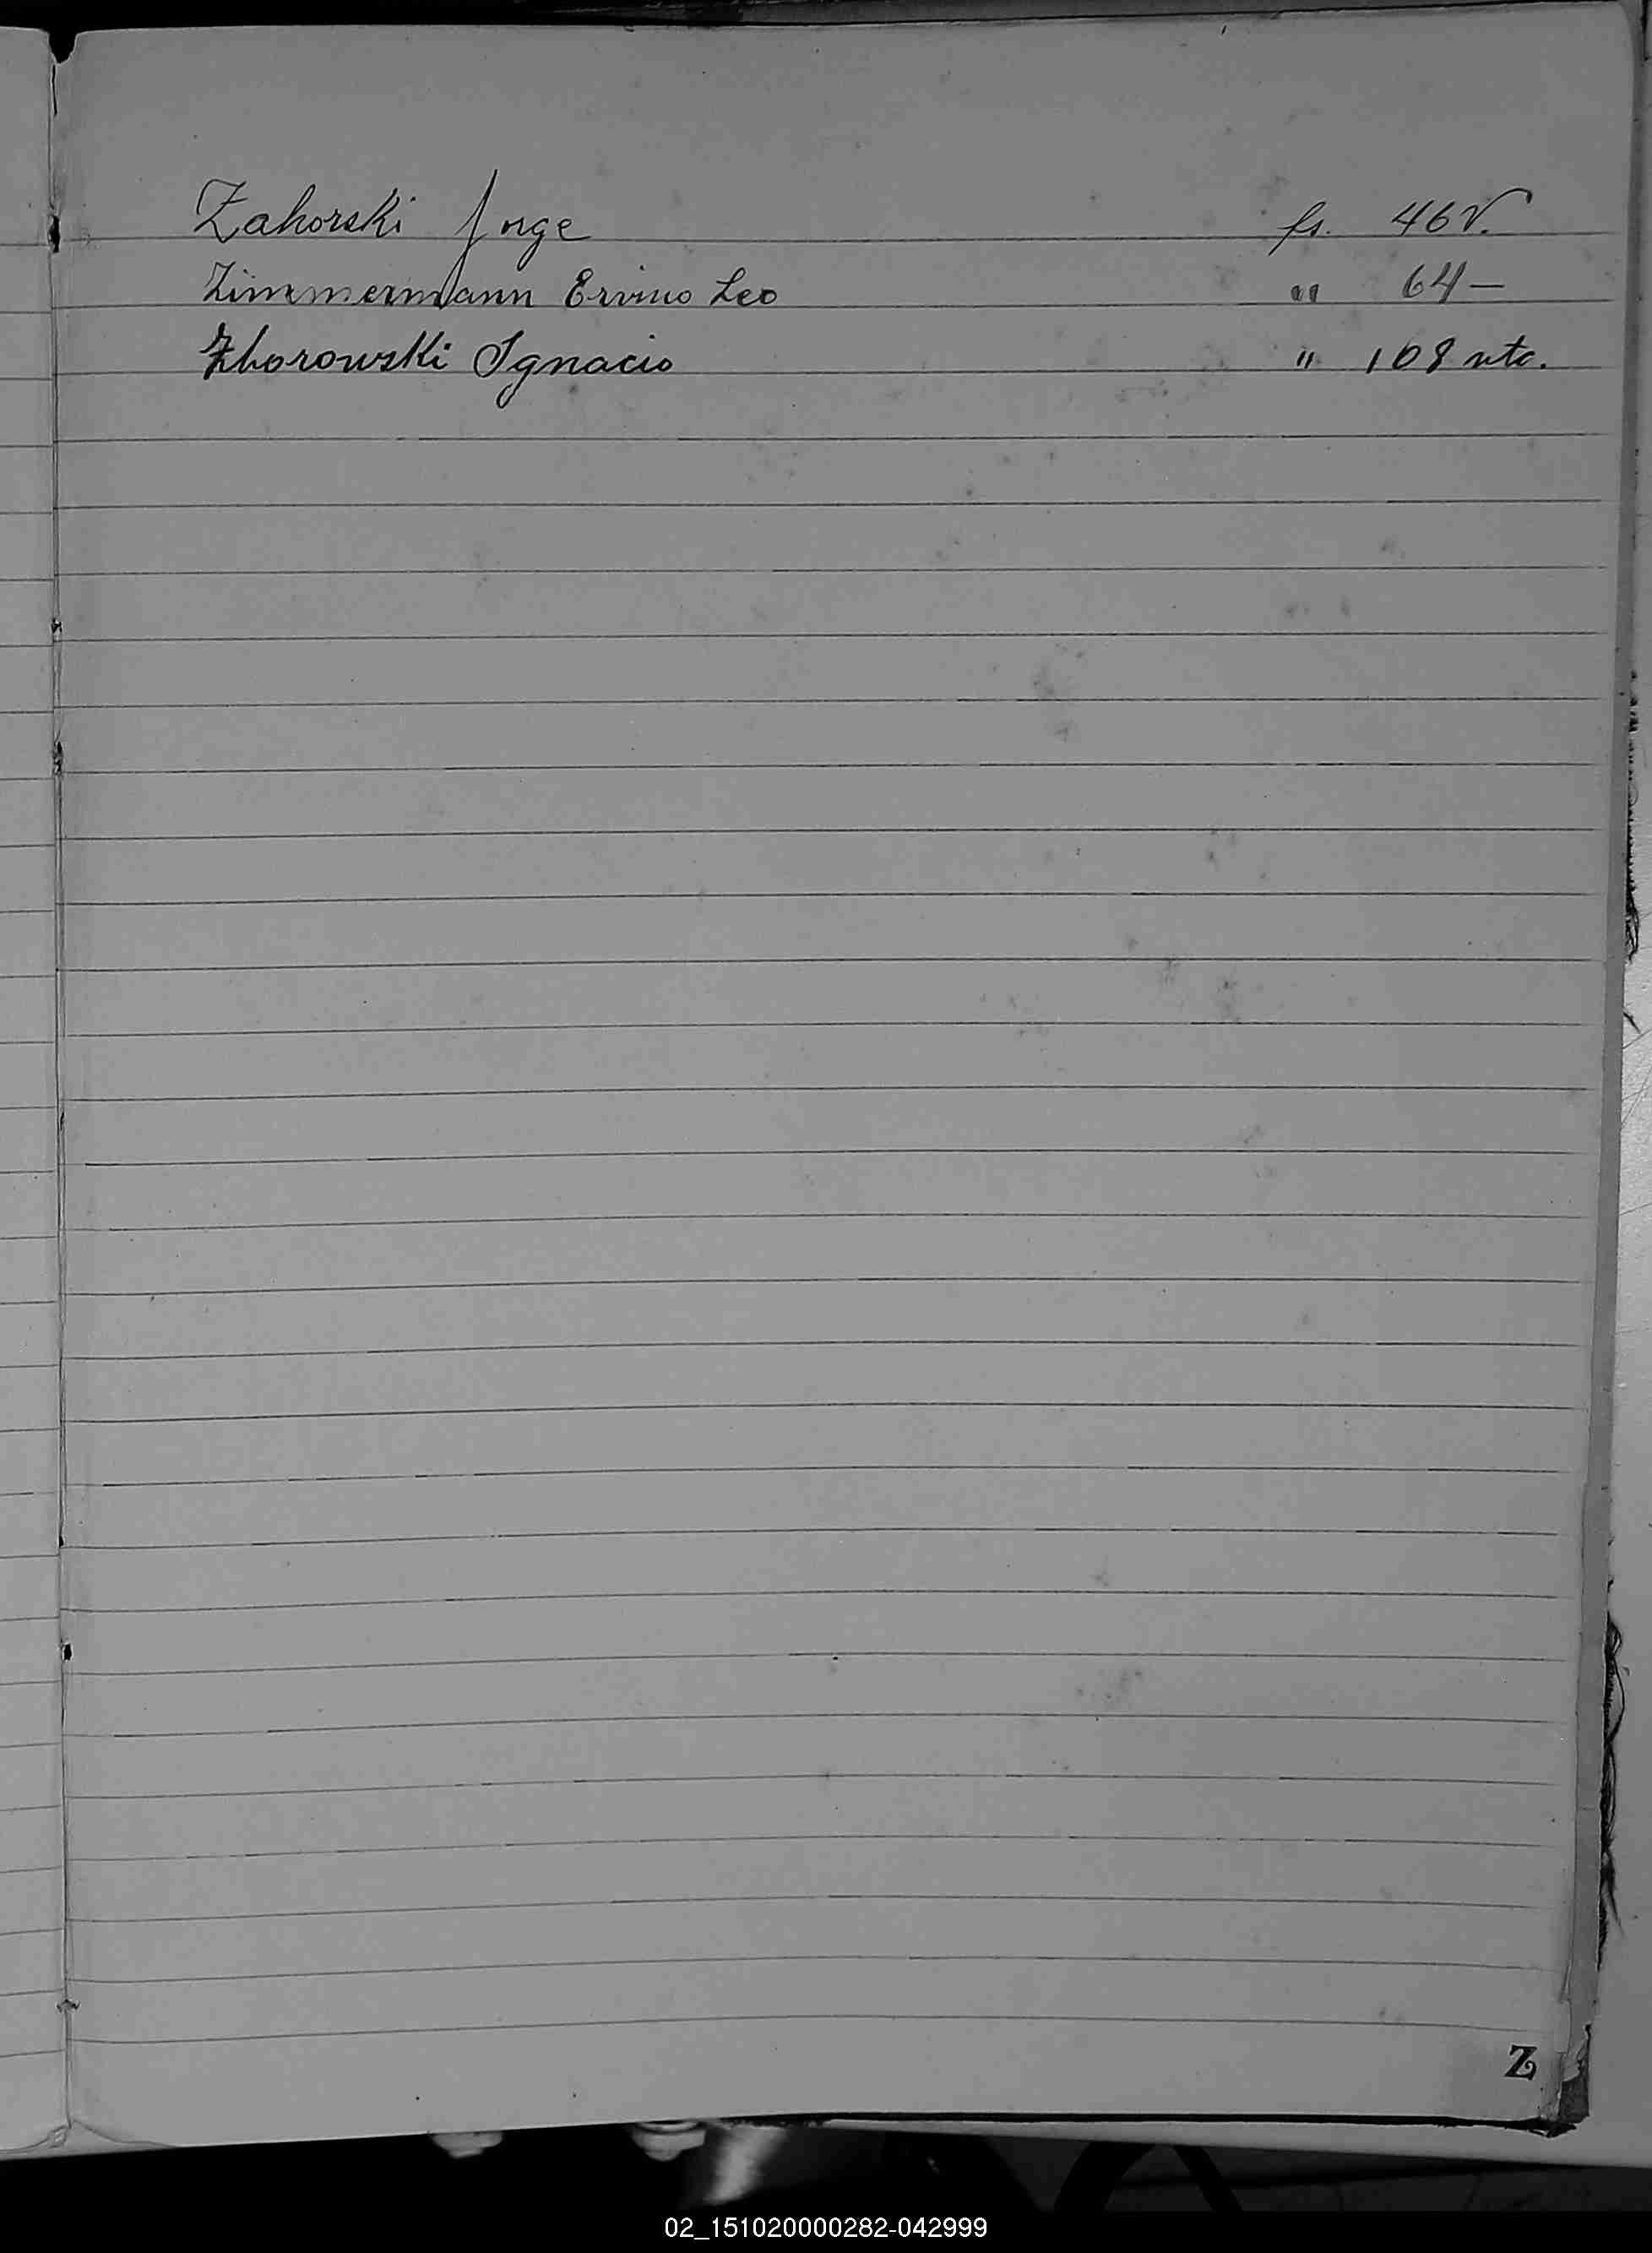 Zahorski Jorge fs. 46 V.
Zimmermann Ervino Leo " 64 —
Zborowski Ignacio " 108 vta.
Z
02_151020000282-042999